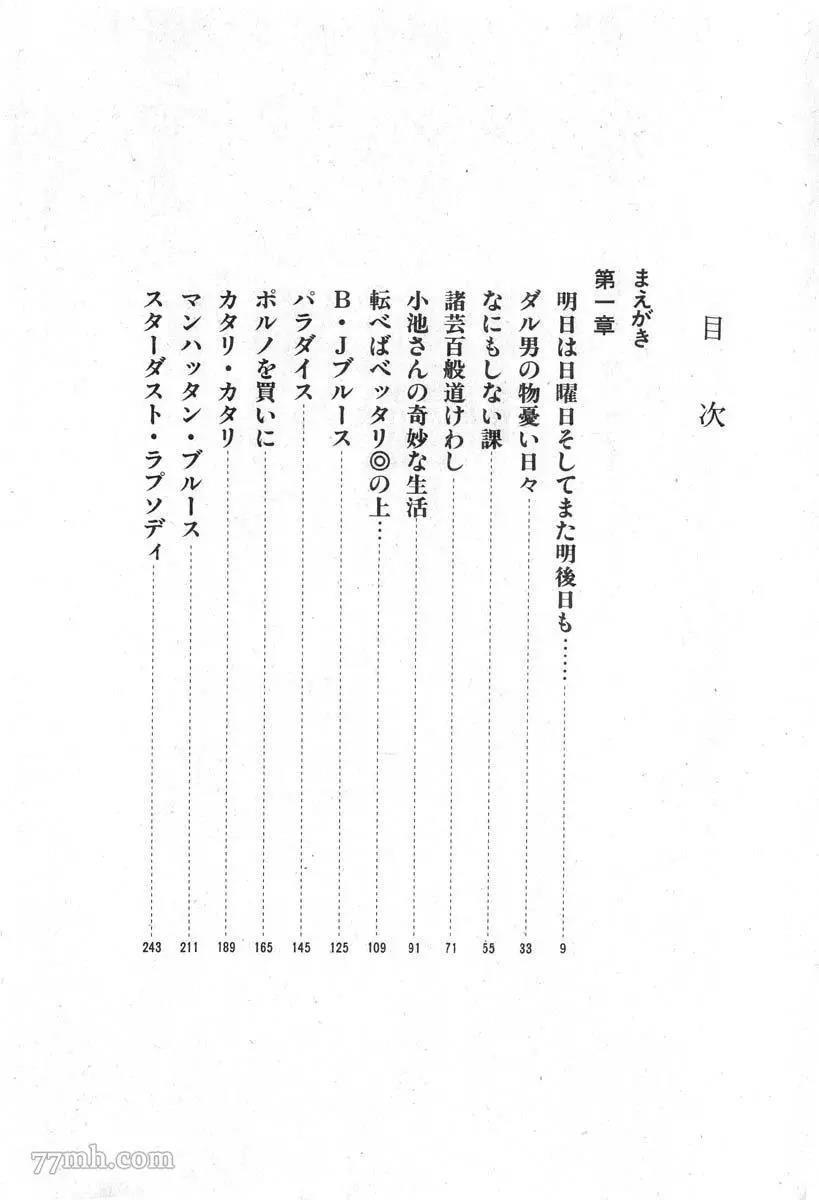 目次
まえがき
第一章
明日は日曜日そしてまた明後日も…… 9
ダル男の物憂い日々 33
なにもしない課 55
諸芸百般道けわし 71
小池さんの奇妙な生活 91
転べばベッタリ◎の上… 109
B・Jブルース 125
パラダイス 145
ポルノを買いに 165
カタリ・カタリ 189
マンハッタン・ブルース 211
スターダスト・ラプソディ 243
77mh.com